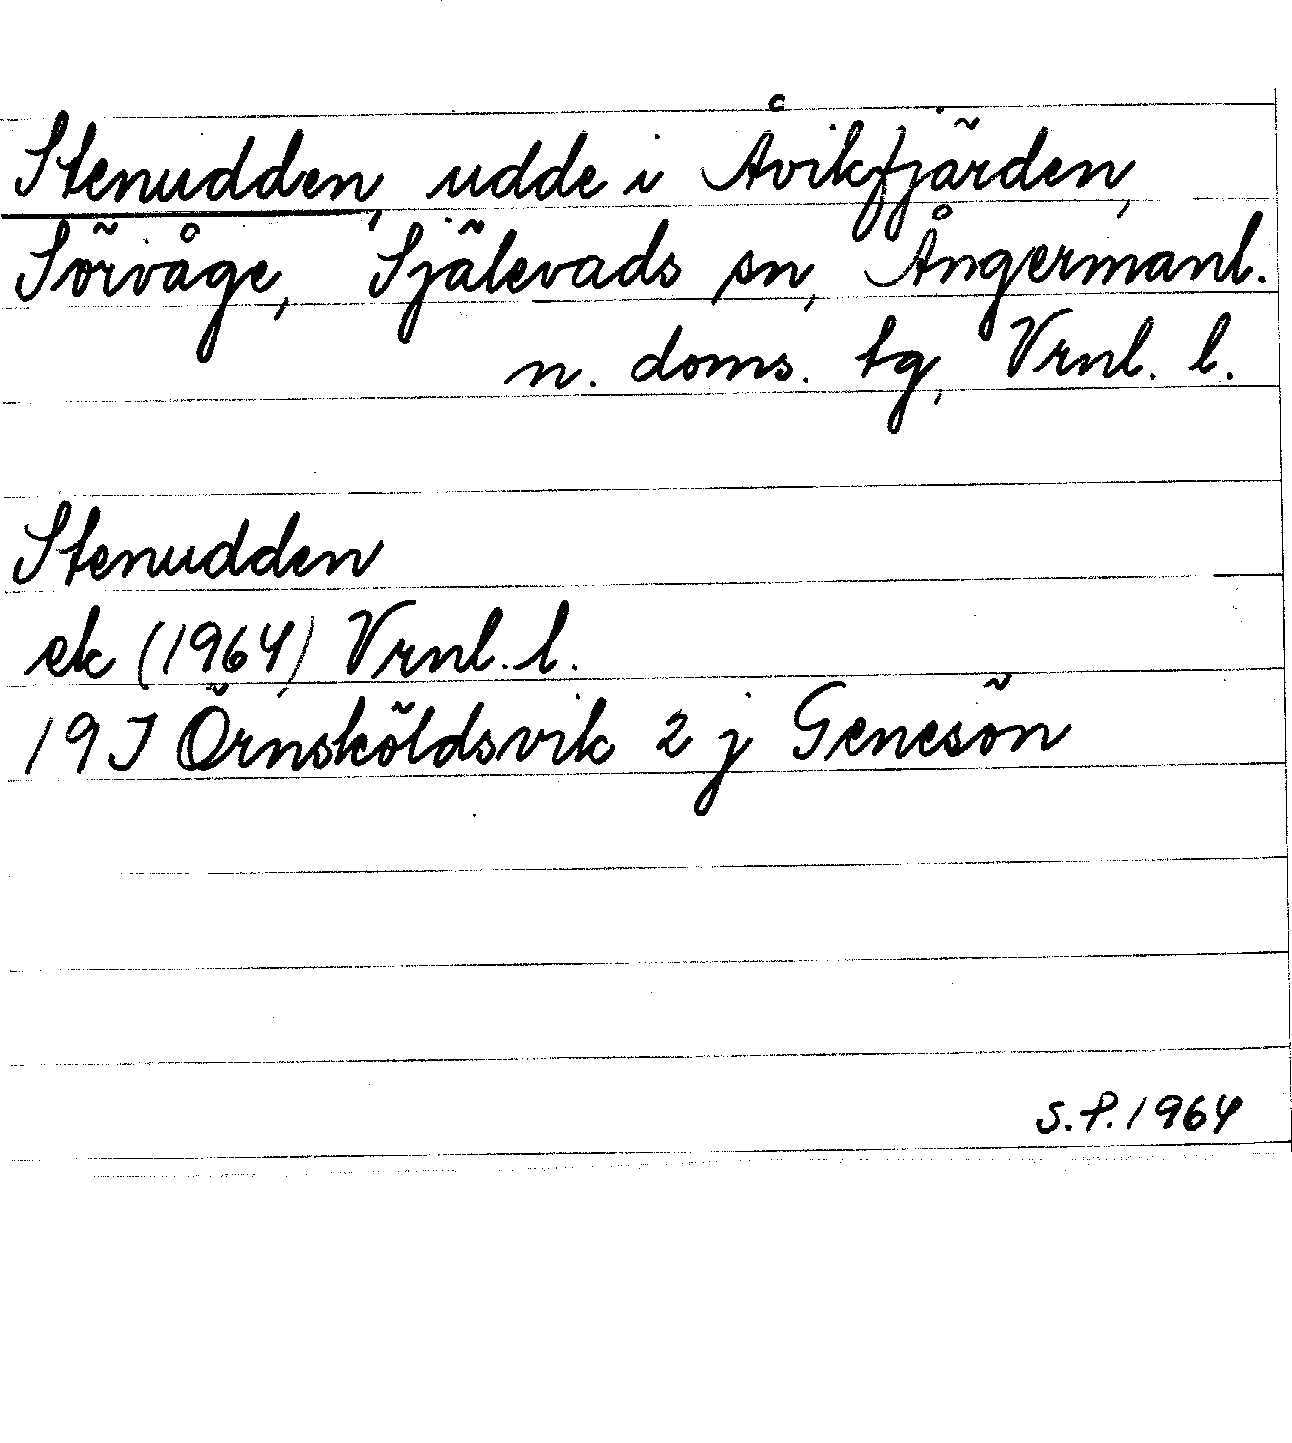 Stenudden, udde i Åvikfjärden,
Sörvåge, Själevads sn, Ångermanl.
n. doms. tg, Vrnl. l.
Stenudden
ek (1964) Vrnl. l.
19J Örnsköldsvik 2 j Genesön
S.P. 1964